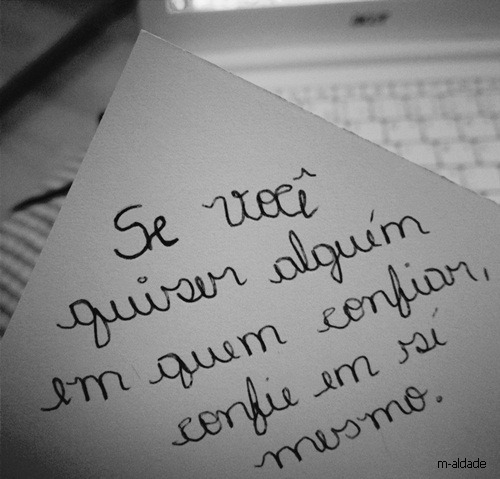 acer
Se você
quiser alguém
em quem confiar,
confie em sí
mesmo.
m-aldade